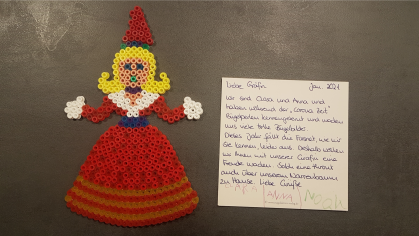 Liebe Gräfin Jan. 2021
wir sind Clara und Anna und
haben während der „Corona Zeit"
Bügelperlen kennengelernt und machen
uns viele tolle Bügelbilder.
Dieses Jahr fällt die Fasnet, wie wir
Sie kennen, leider aus. Deshalb wollen
wir Ihnen mit unserer Gräfin eine
Freude machen. Solch eine thront
auch über unserem Narrenbaum
zu Hause. Liebe Grüße
ANNA